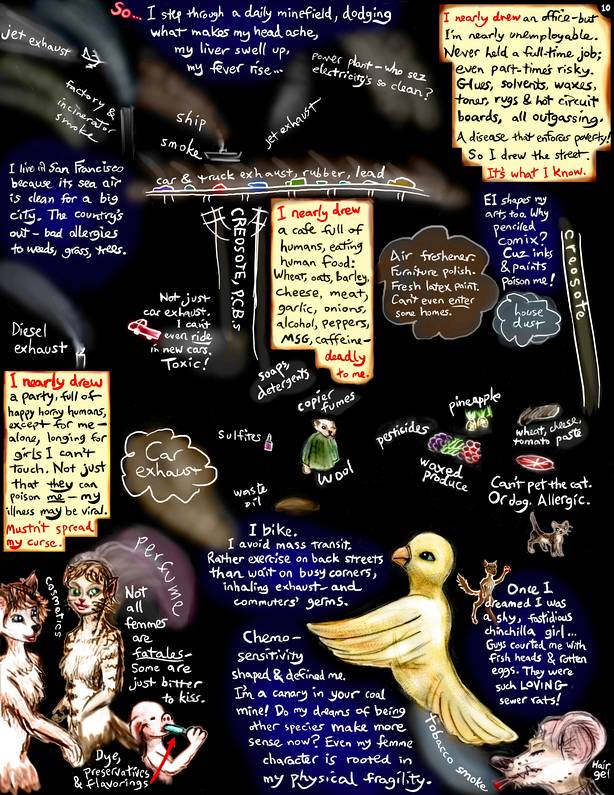 10
So... I step through a daily minefield, dodging
what makes my head ache,
my liver swell up,
my fever rise...
jet exhaust
factory &
incinerator
smoke
ship
smoke
jet exhaust
Power plant - who sez
electricity's so clean?
I nearly drew an office - but
I'm nearly unemployable.
Never held a full-time job;
even part-time's risky.
Glues, solvents, waxes,
toner, rugs & hot circuit
boards, all outgassing.
A disease that enforces poverty!
So I drew the street.
It's what I know.
car & truck exhaust, rubber, lead
I live in San Francisco
because its sea air
is clean for a big
city. The country's
out - bad allergies
to weeds, grass, trees.
CREOSOTE, PCB's
Not just
car exhaust.
I can't
even ride
in new cars.
Toxic!
I nearly drew
a cafe full of
humans, eating
human food:
Wheat, oats, barley,
cheese, meat,
garlic, onions,
alcohol, peppers,
MSG, caffeine -
deadly
to me.
Air freshener.
Furniture polish.
Fresh latex paint.
Can't even enter
some homes.
EI shapes my
art, too. Why
penciled
comix?
Cuz inks
& paints
Poison me!
house
dust
Creosote
Diesel
exhaust
I nearly drew
a party, full of
happy horny humans,
except for me -
alone, longing for
girls I can't
touch. Not just
that they can
poison me - my
illness may be viral.
Mustn't spread
my curse.
Car
exhaust
soaps,
detergents
copier
fumes
sulfites
wool
waste
oil
pesticides
waxed
produce
pineapple
wheat, cheese,
tomato paste
Can't pet the cat.
Or dog. Allergic.
I bike.
I avoid mass transit.
Rather exercise on back streets
than wait on busy corners,
inhaling exhaust - and
commuters' germs.
perfume
cosmetics
Not
all
femmes
are
fatales -
Some are
just bitter
to kiss.
Dye,
preservatives
& flavorings
Chemo-
sensitivity
shaped & defined me.
I'm a canary in your coal
mine! Do my dreams of being
other species make more
sense now? Even my femme
character is rooted in
my physical fragility.
Once I
dreamed I was
a shy, fastidious
chinchilla girl...
Guys courted me with
fish heads & rotten
eggs. They were
such LOVING
sewer rats!
tobacco smoke
Hair
gel